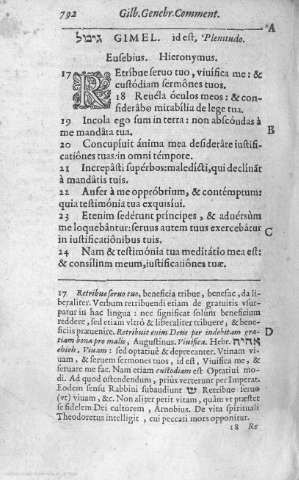 792 Gilb. Genebr. Comment.
A
גימול GIMEL. id est, Plenitudo.
Eusebius. Hieronymus.
17 REtríbue seruo tuo, viuífica me: &
custódiam sermónes tuos.
18 Reuéla óculos meos: & con-
siderábo mirabília de lege tua.
19 Incola ego sum in terra: non abscóndas à
me mandáta tua.
B
20 Concupíuit ánima mea desideráre iustifi-
catiónes tuas in omni témpore.
21 Increpásti supérbos: maledícti, qui declínāt
à mandátis tuis.
22 Aufer à me oppróbrium, & contémptum:
quia testimónia tua exquisíui.
23 Etenim sedérunt príncipes, & aduérsùm
me loquebántur: seruus autem tuus exercebátur
C
in iustificatiónibus tuis.
24 Nam & testimónia tua meditátio mea est:
& consílium meum, iustificatiónes tuæ.
17 Retribue seruo tuo, beneficia tribue, benefac, da li-
beraliter. Verbum retribuendi etiam de gratuitis vsur-
patur in hac lingua: nec significat solùm beneficium
reddere, sed etiam vltrò & liberaliter tribuere, & bene-
ficiis præuenire. Retribuit enim Deus per indebitam gra-
D
tiam bona pro malis, Augustinus. Viuifica. Hebr. אחיה
ehieh, Viuam: sed optatiuè & deprecanter. Vtinam vi-
uam, & seruem sermones tuos, id est, Viuifica me, &
seruare me fac. Nam etiam custodiam est Optatiui mo-
di. Ad quod ostendendum, priùs verterunt per Imperat.
Eodem sensu Rabbini subaudiunt ש Retribue seruo
(vt) viuam, &c. Non aliter petit vitam, quàm vt præstet
se fidelem Dei cultorem, Arnobius. De vita spirituali
Theodoretus intelligit, cui peccati mors opponitur.
18 Re